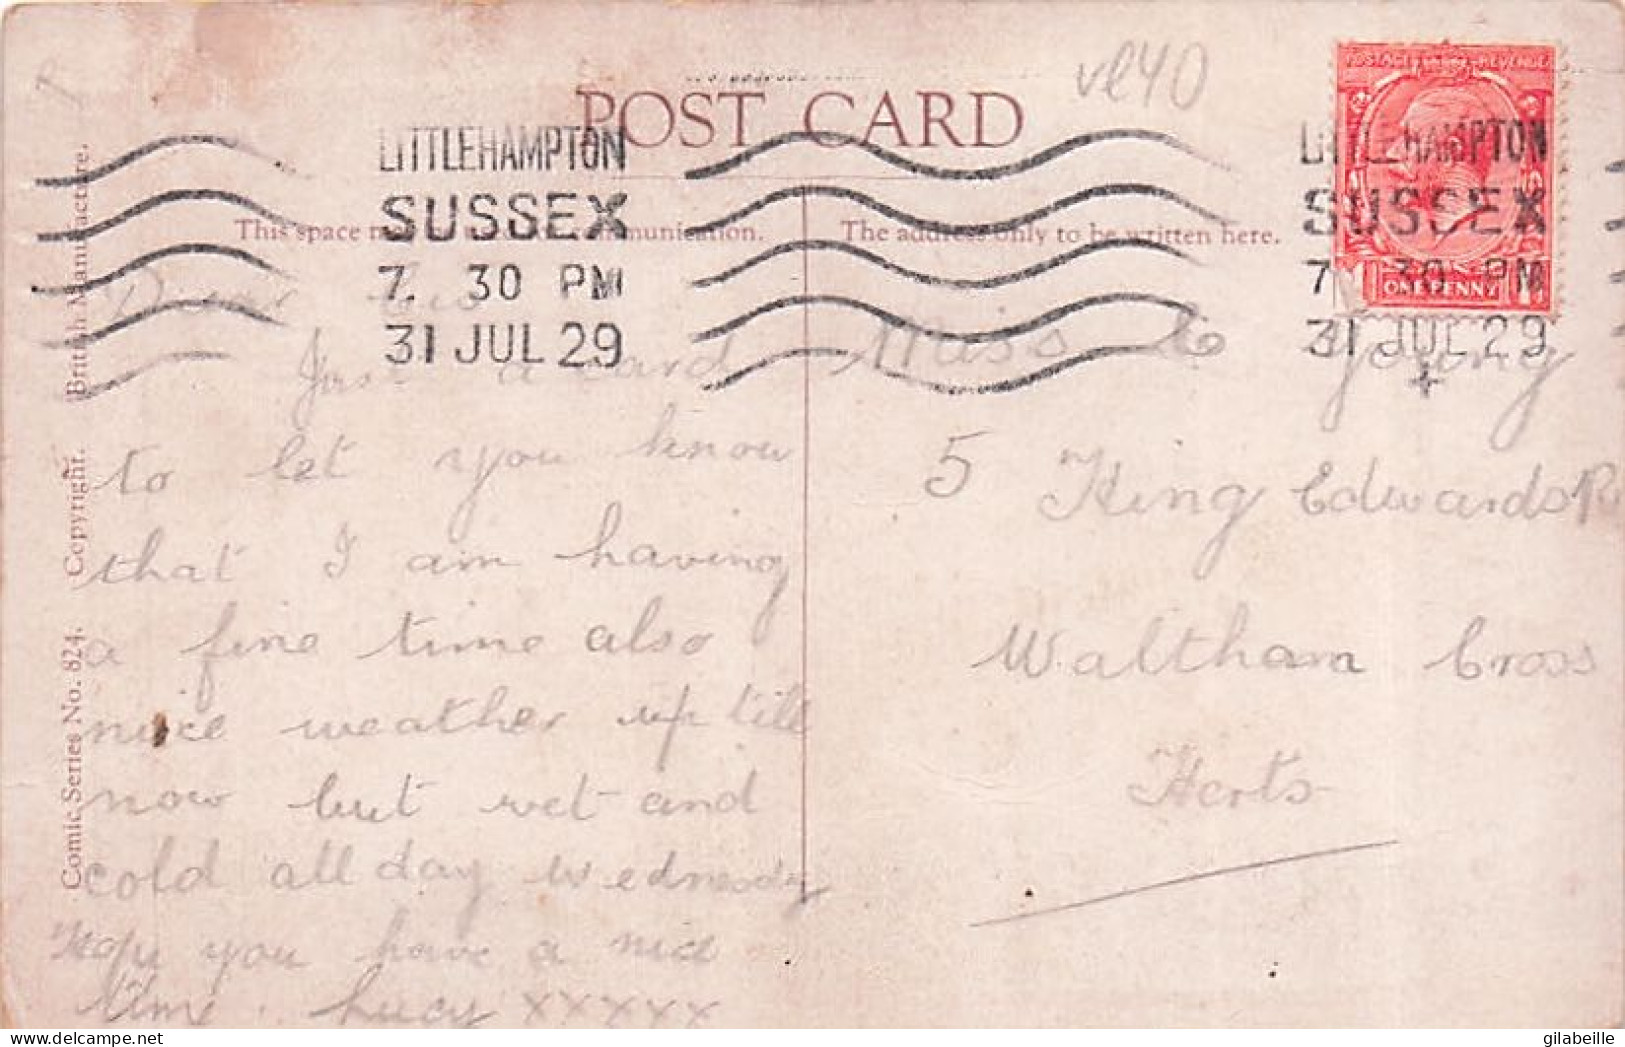 vl40
POST CARD
LITTLEHAMPTON
SUSSEX
7. 30 PM
31 JUL 29
LITTLEHAMPTON
SUSSEX
7. 30 PM
31 JUL 29
POSTAGE REVENUE
1 ONE PENNY 1
This space may be used for communication.
The address only to be written here.
British Manufacture.
Copyright.
Comic Series No. 824.
Dear
Just a card
to let you know
that I am having
a fine time also
nice weather up till
now but wet and
cold all day Wednesday
Hope you have a nice
time. Lucy xxxxx
Miss Young
5 King Edwards R
Waltham Cross
Herts
gilabeille